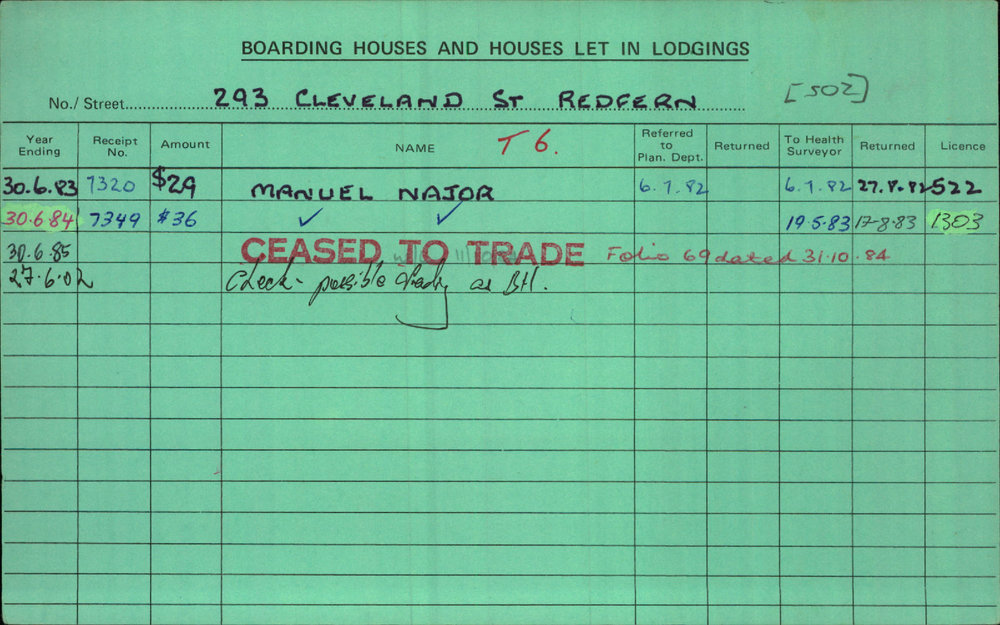 BOARDING HOUSES AND HOUSES LET IN LODGINGS
No./ Street 293 CLEVELAND ST REDFERN [502]
Year Ending Receipt No. Amount NAME T 6. Referred to Plan. Dept. Returned To Health Surveyor Returned Licence
30.6.83 7320 $29 MANUEL NAJOR 6.7.82 6.7.82 27.8.82 522
30.6.84 7349 $36 ✓ ✓ 19.5.83 17-8-83 1303
30.6.85 CEASED TO TRADE Folio 69 dated 31.10.84
27.6.02 Check - possible trading as BH.